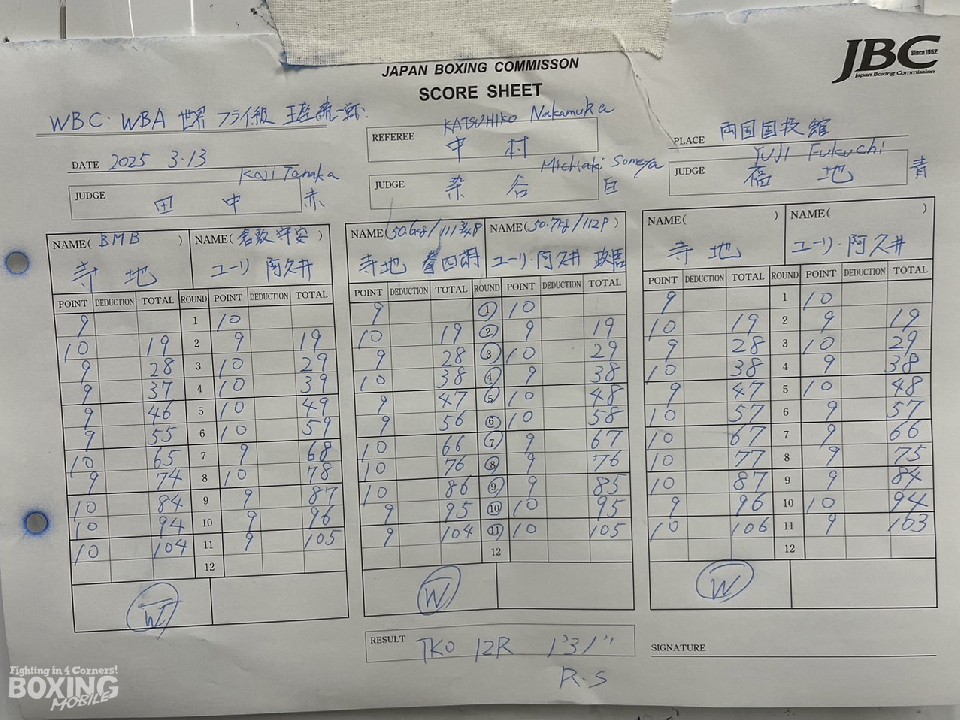 JBC
Since 1952
Japan Boxing Commission
JAPAN BOXING COMMISSON
SCORE SHEET
WBC・WBA 世界 フライ級 王座統一戦
REFEREE KATSUHIKO Nakamura
中村
PLACE 両国国技館
DATE 2025 3.13
JUDGE Koji Tanaka
田中 赤
JUDGE Michiaki Someya
染谷 白
JUDGE Fuji Fukuchi
福地 青
NAME( BMB ) NAME(倉敷守安)
寺地 ユーリ 阿久井
POINT DEDUCTION TOTAL ROUND POINT DEDUCTION TOTAL
9 1 10
10 19 2 9 19
9 28 3 10 29
9 37 4 10 39
9 46 5 10 49
9 55 6 10 59
10 65 7 9 68
9 74 8 10 78
10 84 9 9 87
10 94 10 9 96
10 104 11 9 105
12
W
NAME( NAME(
寺地 拳四朗 ユーリ 阿久井 政悟
POINT DEDUCTION TOTAL ROUND POINT DEDUCTION TOTAL
9 1 10
10 19 2 9 19
9 28 3 10 29
10 38 4 9 38
9 47 5 10 48
9 56 6 10 58
10 66 7 9 67
10 76 8 9 76
10 86 9 9 85
9 95 10 10 95
9 104 11 10 105
12
W
NAME( ) NAME( )
寺地 ユーリ 阿久井
POINT DEDUCTION TOTAL ROUND POINT DEDUCTION TOTAL
9 1 10
10 19 2 9 19
9 28 3 10 29
10 38 4 9 38
9 47 5 10 48
10 57 6 9 57
10 67 7 9 66
10 77 8 9 75
10 87 9 9 84
9 96 10 10 94
10 106 11 9 103
12
W
RESULT TKO 12R 1'31"
R.S
SIGNATURE
Fighting in 4 Corners!
BOXING
MOBILE